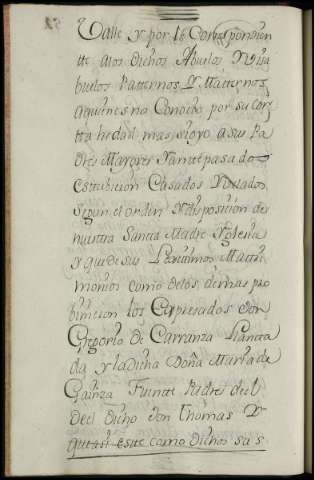 Valle y por lo Correspondien
tte alos Dichos Abuelos y Visa
buelos Patternos, y Matternos,
aquienes no Conocio por su Cor
tta hedad mas, oyo a sus Pa
dres Mayores y antepasados
estubieron Casados y Velados
segun el orden y disposicion de
nuestra Santa Madre Yglesia
y que de sus Lexitimos Matri
monios como delos, demas pro
binieron los Expresados don
Gregorio de Carranza Llantta
da y la Dicha Doña Maria de
Gainza Fuentte Padres del
decl dicho don Thomas y
que asi estte como Dichos sa s